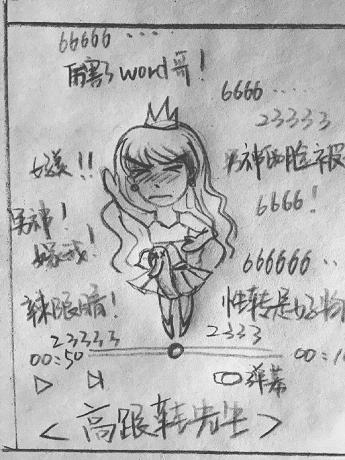 66666 ····
厉害了word哥！
6666 ····
23333
嫁!!
男神的脸被
6666！
男神！
嫁我！
666666 ··
辣眼睛！
性转是好物
23333
2333
00:50
00:1
弹幕
<高跟鞋先生>